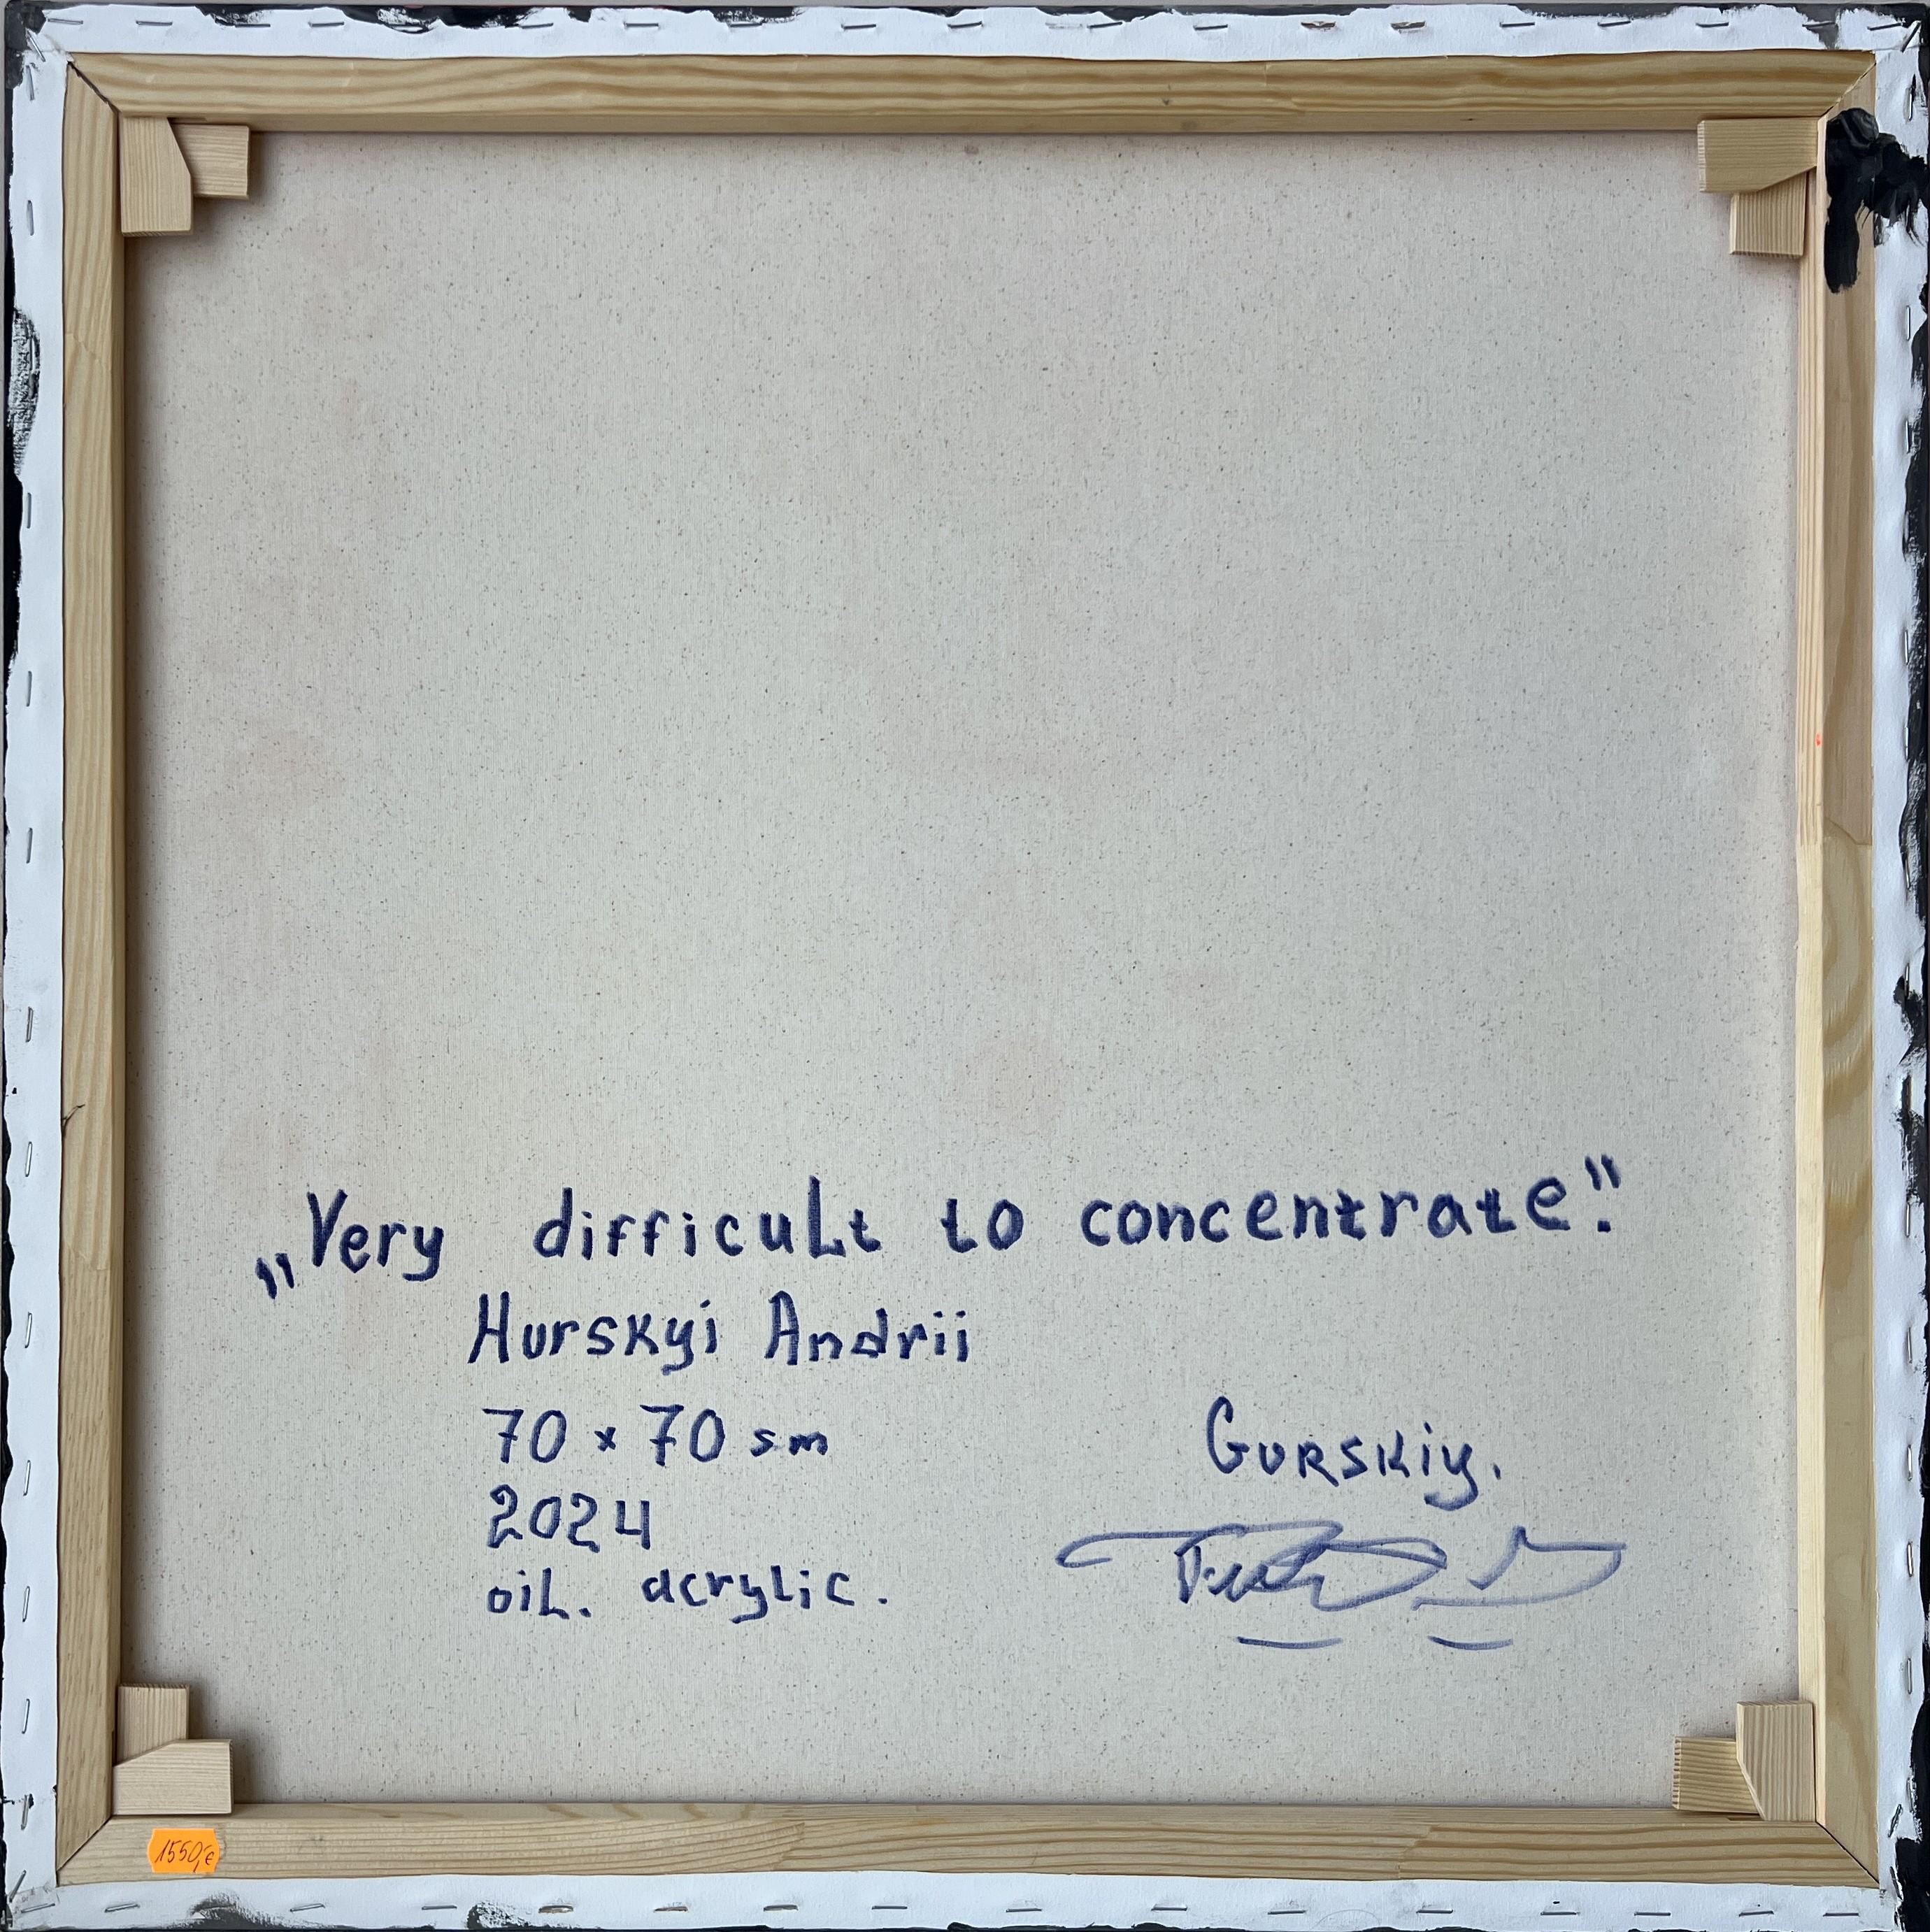 „Very difficult to concentrate."
Hurskyi Andrii
70 x 70 sm
2024
oil. acrylic.
Gurskiy.
1550,-€